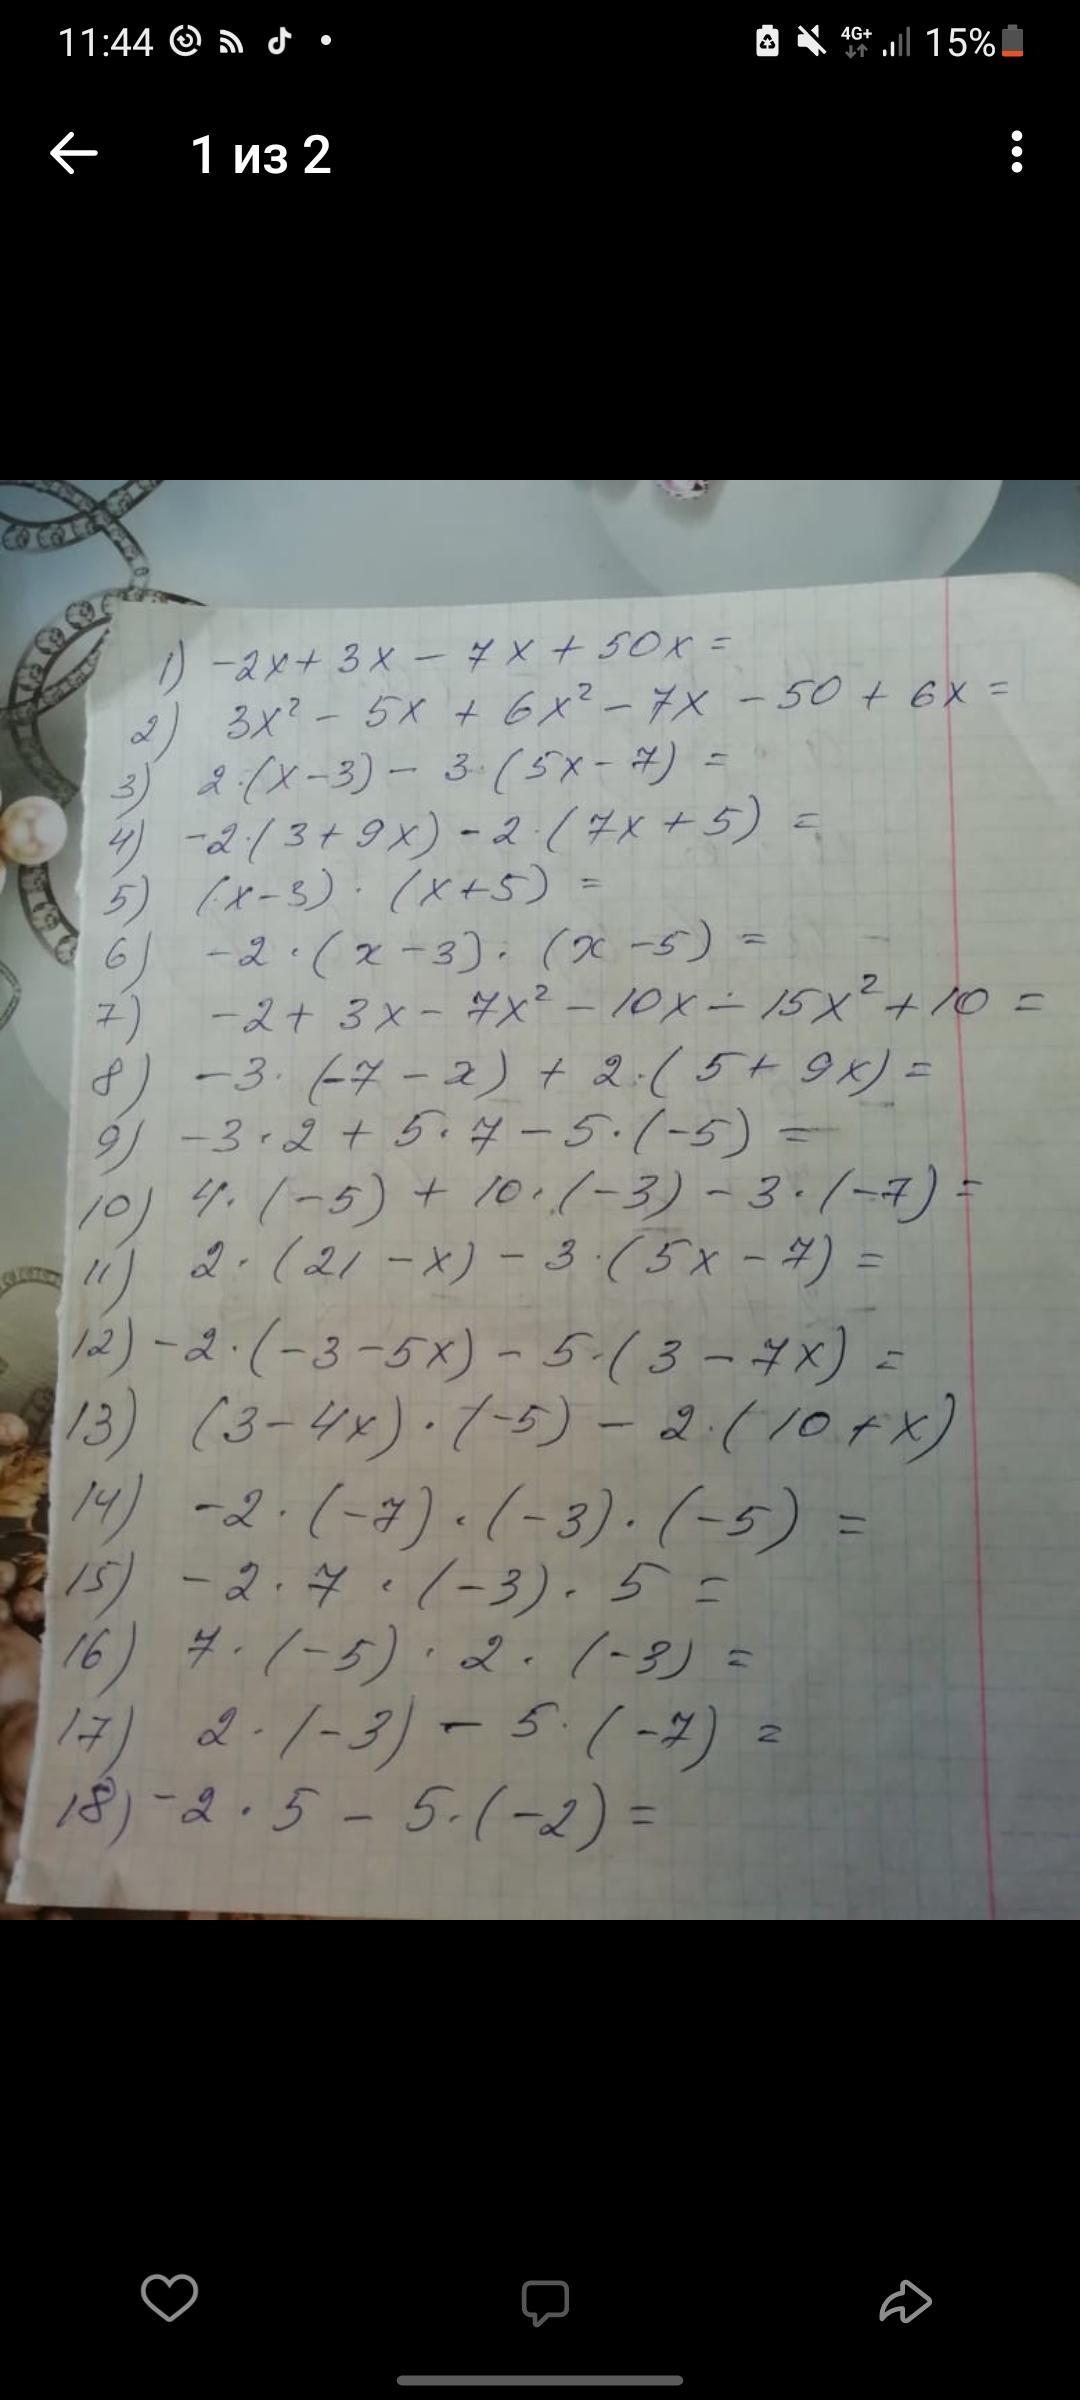 11:44
4G+
15%
1 из 2
1) -2x + 3x - 7x + 50x =
2) 3x² - 5x + 6x² - 7x - 50 + 6x =
3) 2·(x-3) - 3·(5x-7) =
4) -2·(3+9x) - 2·(7x+5) =
5) (x-3) · (x+5) =
6) -2·(x-3)·(x-5) =
7) -2 + 3x - 7x² - 10x - 15x² + 10 =
8) -3·(-7-x) + 2·(5+9x) =
9) -3·2 + 5·7 - 5·(-5) =
10) 4·(-5) + 10·(-3) - 3·(-7) =
11) 2·(21-x) - 3·(5x-7) =
12) -2·(-3-5x) - 5·(3-7x) =
13) (3-4x)·(-5) - 2·(10+x)
14) -2·(-7)·(-3)·(-5) =
15) -2·7·(-3)·5 =
16) 7·(-5)·2·(-3) =
17) 2·(-3) - 5·(-7) =
18) -2·5 - 5·(-2) =